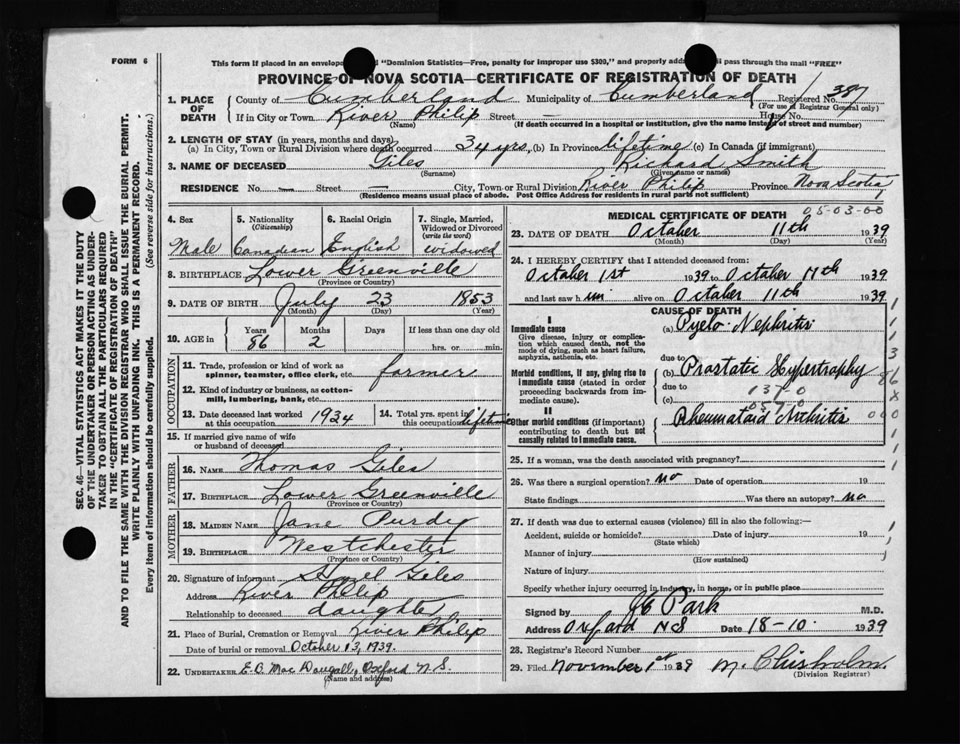 FORM 6
This form if placed in an envelope "Dominion Statistics—Free, penalty for improper use $300," and properly addressed will pass through the mail "FREE"
PROVINCE OF NOVA SCOTIA—CERTIFICATE OF REGISTRATION OF DEATH
1. PLACE OF DEATH
County of Cumberland Municipality of Cumberland Registered No. 387
(For use of Registrar General only)
If in City or Town River Philip Street — House No.
(Name) (If death occurred in a hospital or institution, give the name instead of street and number)
2. LENGTH OF STAY (in years, months and days)
(a) In City, Town or Rural Division where death occurred 34 yrs. (b) In Province lifetime (c) In Canada (if immigrant)
3. NAME OF DECEASED Giles Richard Smith
(Surname) (Given name or names)
RESIDENCE No. — Street — City, Town or Rural Division River Philip Province Nova Scotia
(Residence means usual place of abode. Post Office Address for residents in rural parts not sufficient)
4. Sex Male
5. Nationality (Citizenship) Canadian
6. Racial Origin English
7. Single, Married, Widowed or Divorced (write the word) widowed
8. BIRTHPLACE Lower Greenville
(Province or Country)
9. DATE OF BIRTH July 23 1853
(Month) (Day) (Year)
10. AGE in Years 86 Months 2 Days If less than one day old hrs. or min.
OCCUPATION
11. Trade, profession or kind of work as spinner, teamster, office clerk, etc. farmer
12. Kind of industry or business, as cotton-mill, lumbering, bank, etc.
13. Date deceased last worked at this occupation 1934
14. Total yrs. spent in this occupation lifetime
15. If married give name of wife or husband of deceased
FATHER
16. NAME Thomas Giles
17. BIRTHPLACE Lower Greenville
(Province or Country)
MOTHER
18. MAIDEN NAME Jane Purdy
19. BIRTHPLACE Westchester
(Province or Country)
20. Signature of informant Hazel Giles
Address River Philip
Relationship to deceased daughter
21. Place of Burial, Cremation or Removal River Philip
Date of burial or removal October 13, 1939.
22. UNDERTAKER E.C. Mac Dougall, Oxford N.S.
(Name and address)
MEDICAL CERTIFICATE OF DEATH 05-03-00
23. DATE OF DEATH October 11th 1939
(Month) (Day) (Year)
24. I HEREBY CERTIFY that I attended deceased from:
October 1st 1939 to October 11th 1939
and last saw him alive on October 11th 1939
CAUSE OF DEATH
I
Immediate cause
Give disease, injury or complication which caused death, not the mode of dying, such as heart failure, asphyxia, asthenia, etc.
(a) Pyelo-Nephritis
due to
Morbid conditions, if any, giving rise to immediate cause (stated in order proceeding backwards from immediate cause).
(b) Prostatic Hypertrophy
due to 137-0
(c) 059-0
II
Other morbid conditions (if important) contributing to death but not causally related to immediate cause.
Rheumatoid Arthritis
25. If a woman, was the death associated with pregnancy?
26. Was there a surgical operation? no Date of operation 19
State findings Was there an autopsy? no
27. If death was due to external causes (violence) fill in also the following:—
Accident, suicide or homicide? Date of injury 19
(State which)
Manner of injury
(How sustained)
Nature of injury
Specify whether injury occurred in industry, in home, or in public place
Signed by Park M.D.
Address Oxford NS Date 18-10- 1939
28. Registrar's Record Number
29. Filed November 1st 1939 M. Chisholm
(Division Registrar)
SEC. 46—VITAL STATISTICS ACT MAKES IT THE DUTY
OF THE UNDERTAKER OR PERSON ACTING AS UNDERTAKER
TO OBTAIN ALL THE PARTICULARS REQUIRED
IN THE "CERTIFICATE OF REGISTRATION OF DEATH"
AND TO FILE THE SAME WITH THE DIVISION REGISTRAR WHO SHALL ISSUE THE BURIAL PERMIT.
WRITE PLAINLY WITH UNFADING INK. THIS IS A PERMANENT RECORD.
Every item of information should be carefully supplied. (See reverse side for instructions.)